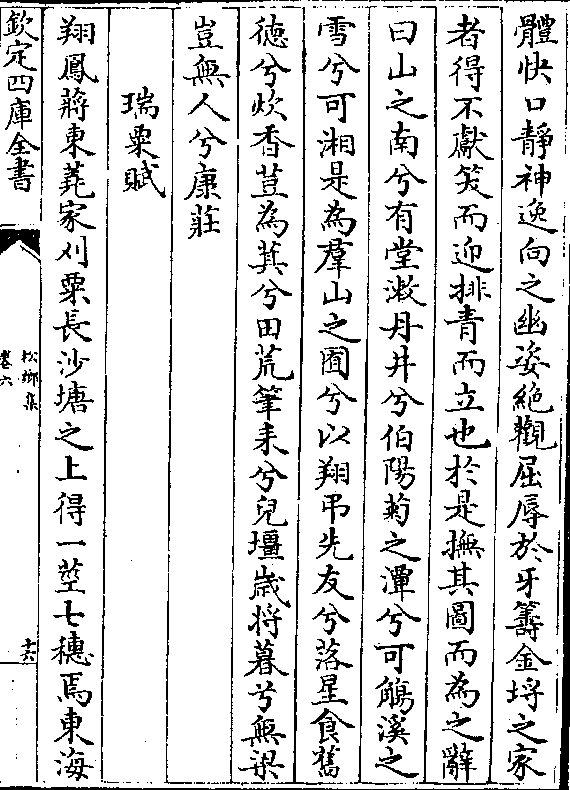 體快口靜神逸向之幽姿絶觀屈辱於牙籌金埒之家
者得不獻笑而迎排青而立也於是撫其圖而為之辭
曰山之南兮有堂潄丹井兮伯陽菊之潭兮可觴溪之
雪兮可湘是為羣山之囿兮以翔弔先友兮落星食舊
徳兮炊香荳為萁兮田荒筆耒兮兒壃歳将暮兮無梁
豈無人兮康莊
瑞粟賦
翔鳳蔣東蕘家刈粟長沙塘之上得一莖七穗焉東海
欽定四庫全書
松鄉集
卷六
十六